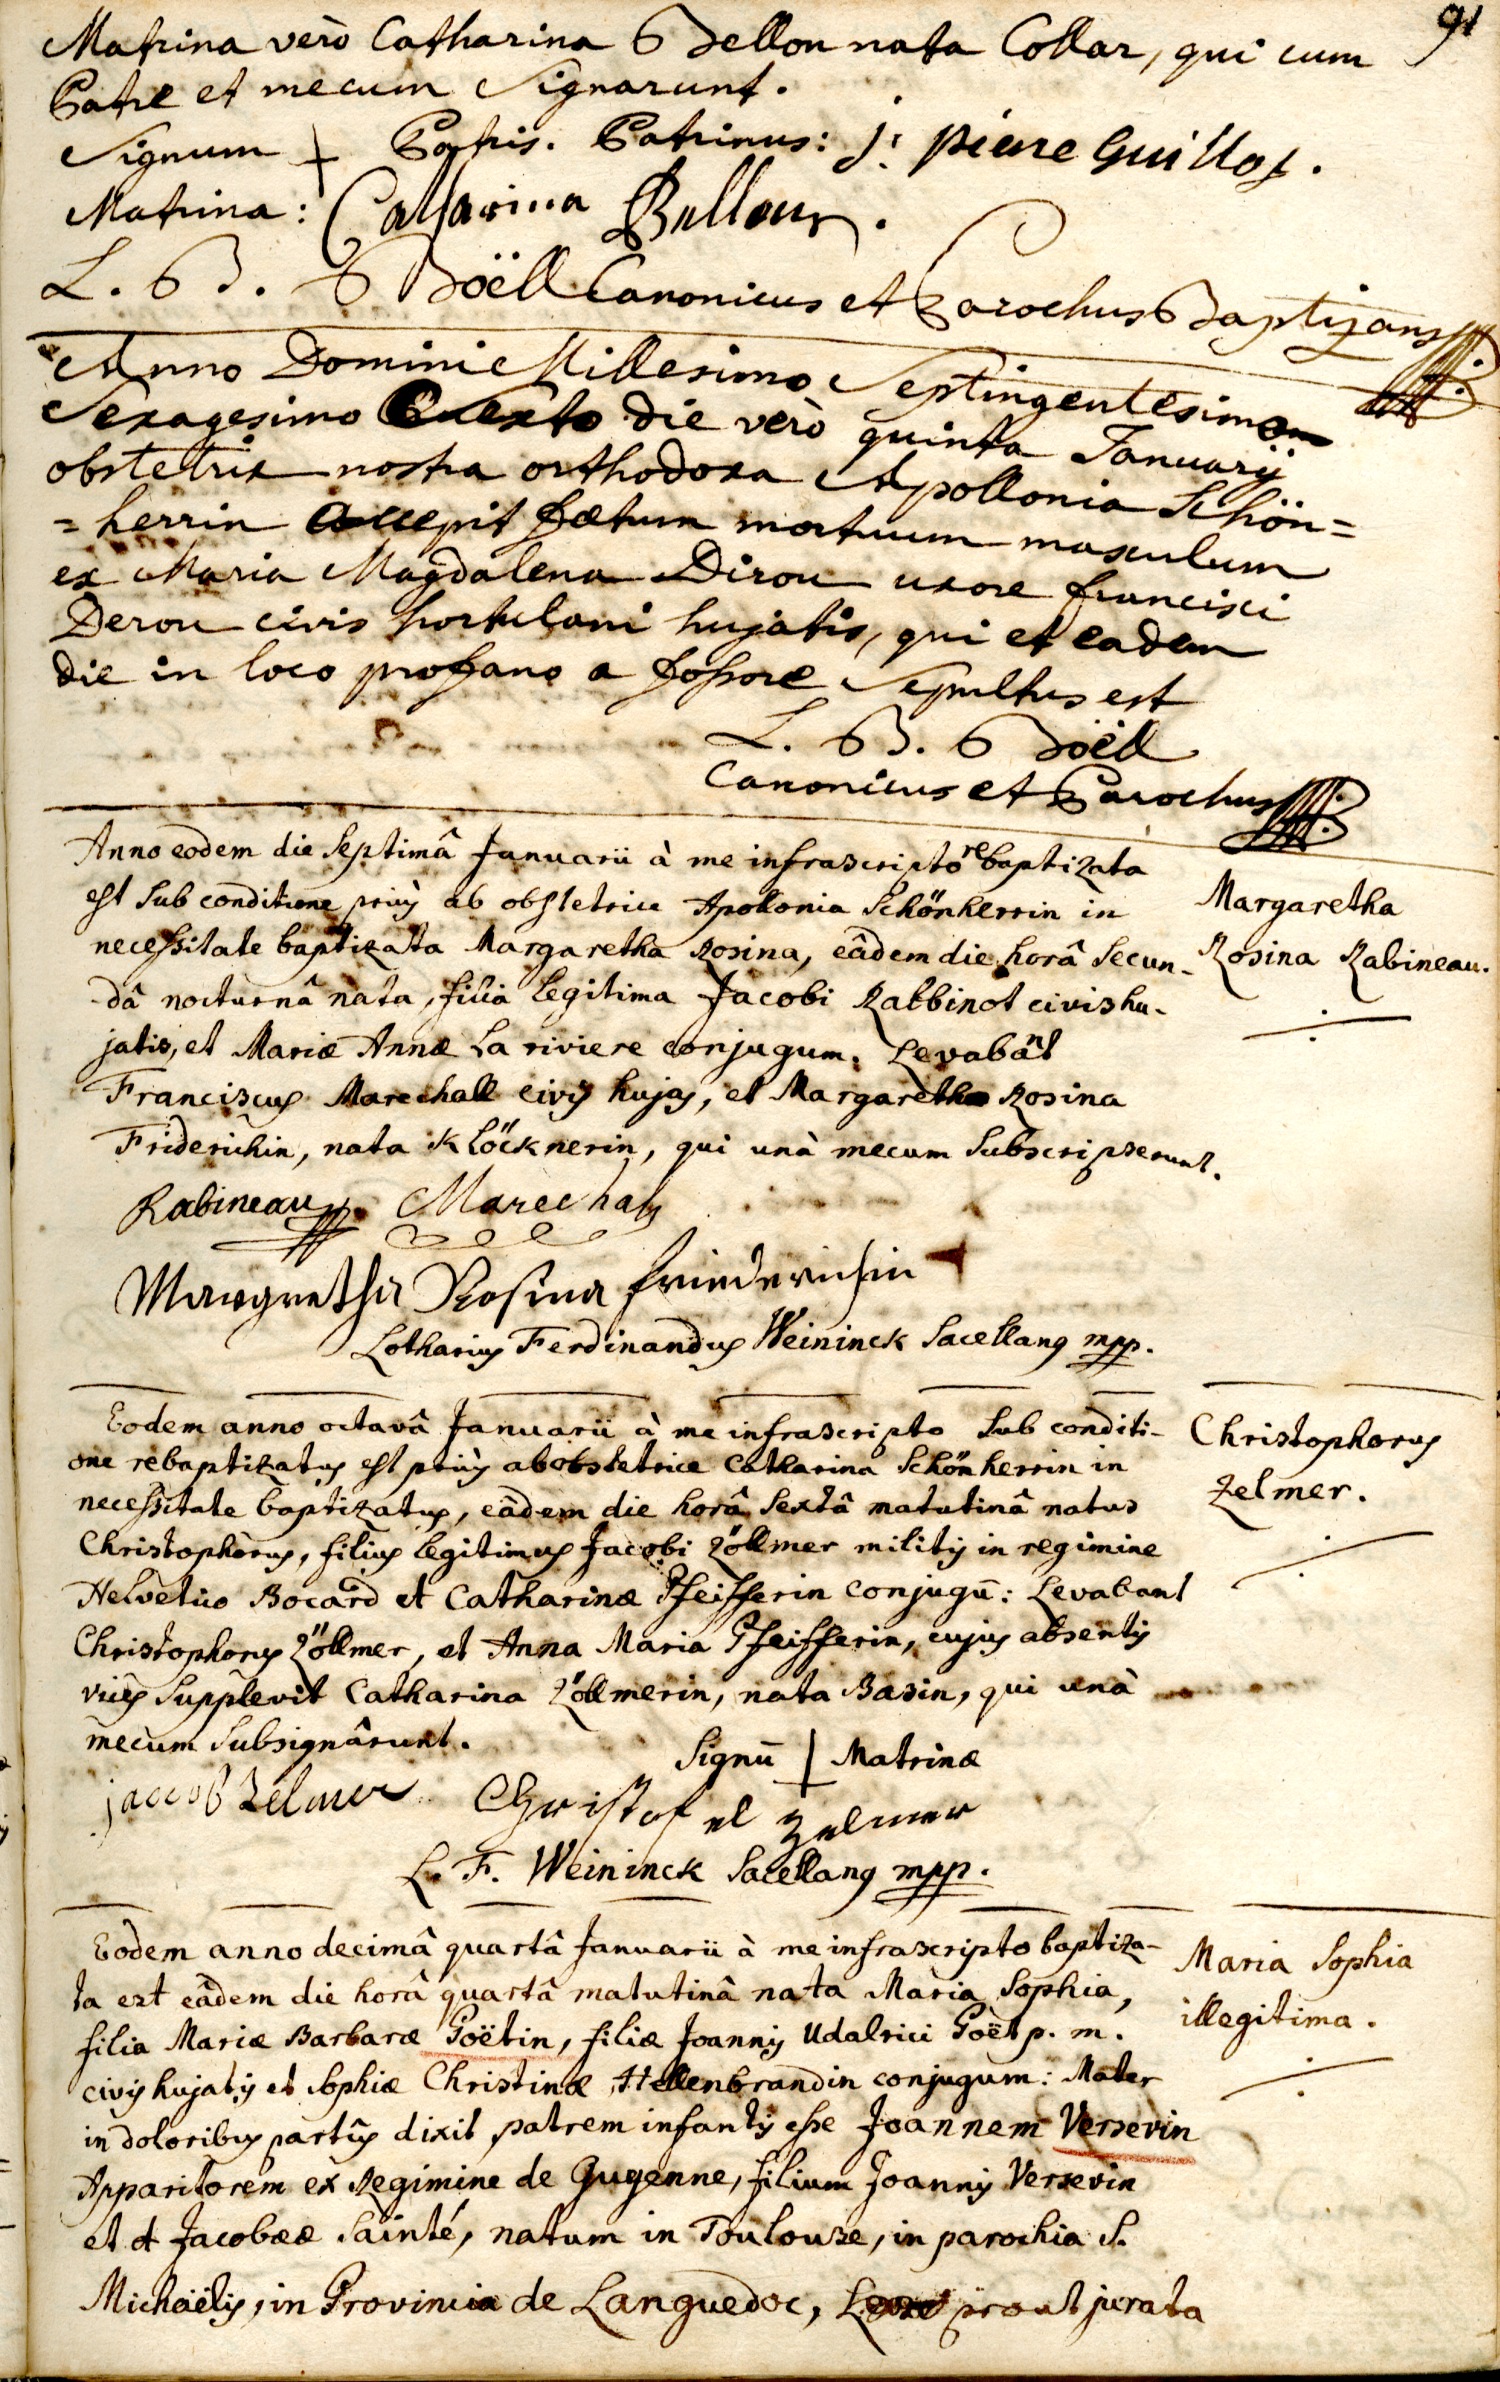 91
Matrina verò Catharina Bellon nata Collar, qui cum
Patre et mecum Signarunt.
Signum + Patris. Patrinus: j: pierre Guillot.
Matrina: Catharina Bellour.
L. B. Boëll Canonicus et Parochus Baptizans
Anno Domini Millesimo Septingentesimo
Sexagesimo Sexto die verò quinta Januarij
obstetrix nostra orthodoxa Apollonia Schön=
=herrin accepit foetum mortuum masculum
ex Maria Magdalena Dirou uxore francisci
Derou civis hortulani hujatis, qui et eadem
die in loco profano a fossore Sepultus est
L. B. Boëll
Canonicus et Parochus
Anno eodem die Septimâ Januarii à me infrascripto rebaptizata
est Sub conditione priùs ab obstetrice Apollonia Schönherrin in
necessitate baptizata Margaretha Rosina, eâdem die horâ Secun-
dâ nocturnâ nata, filia legitima Jacobi Rabbinot civis hu-
jatis, et Mariæ Annæ La riviere conjugum. Levabãt
Franciscus Marechall civis hujas, et Margaretha Rosina
Friderichin, nata Klöcknerin, qui unà mecum Subscripserunt.
Margaretha
Rosina Rabineau.
Rabineau Marechal
Margretha Rosina friederichin
Lotharius Ferdinandus Weininck Sacellanus mpp.
Eodem anno octavâ Januarii à me infrascripto Sub conditi-
one rebaptizatus est priùs ab obstetrice Catharina Schönherrin in
necessitate baptizatus, eâdem die horâ Sextâ matutinâ natus
Christophorus, filius legitimus Jacobi Zöllmer militis in regimine
Helvetico Bocard et Catharinæ Pfeifferin conjugũ: Levabant
Christophorus Zöllmer, et Anna Maria Pfeifferin, cujus absentis
vices Supplevit Catharina Zöllmerin, nata Basin, qui unà
mecum Subsignârunt.
Christophorus
Zelmer.
Signũ + Matrinæ
jacob Zelmer Christofel Zelmer
L. F. Weininck Sacellanus mpp.
Eodem anno decimâ quartâ Januarii à me infrascripto baptiza-
ta est eâdem die horâ quartâ matutinâ nata Maria Sophia,
filia Mariæ Barbaræ Goëtin, filiæ Joannis Udalrici Goët p. m.
civis hujatis et Sophiæ Christinæ Hellenbrandin conjugum: Mater
in doloribus partûs dixit patrem infantis esse Joannem Versevin
Apparitorem ex Regimine de Guyenne, filium Joannis Versevin
et Jacobææ Sainté, natum in Toulouse, in parochia S.
Michaëlis, in Provincia de Languedoc, prout jurata
Maria Sophia
illegitima.